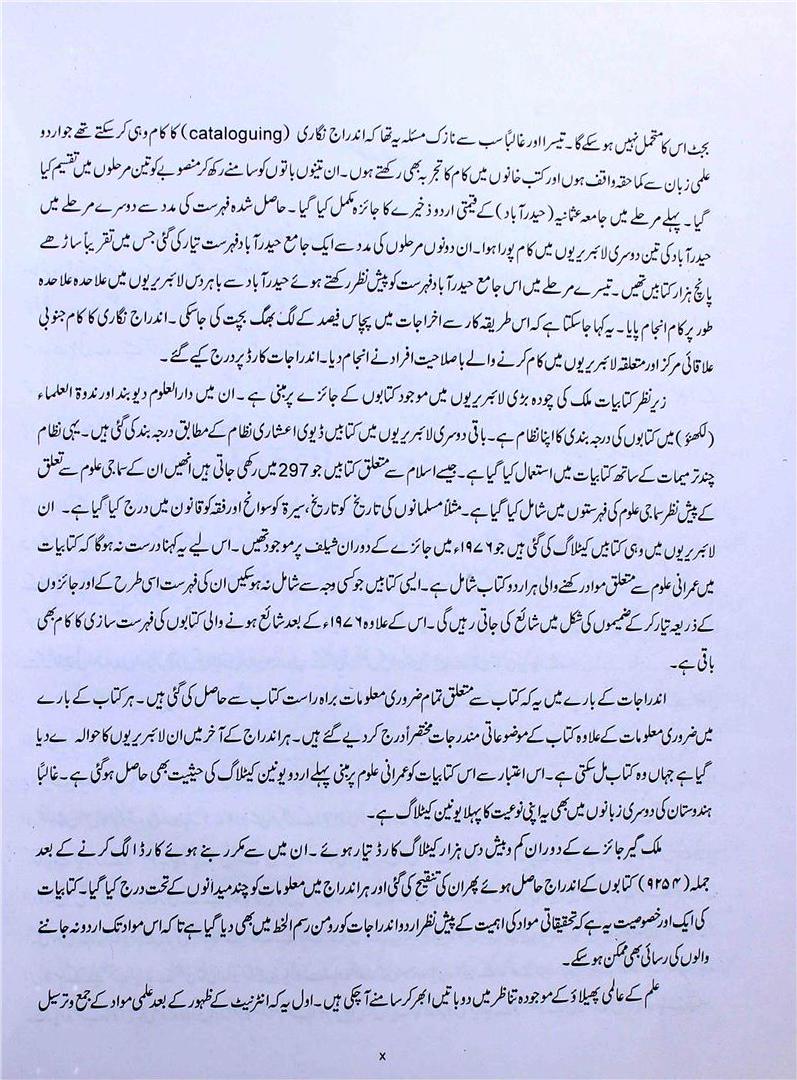 بجٹ اس کا متحمل نہیں ہو سکے گا۔ تیسرا اور غالباً سب سے نازک مسئلہ یہ تھا کہ اندراج نگاری (cataloguing) کا کام وہی کر سکتے تھے جو اردو
علمی زبان سے کما حقہ واقف ہوں اور کتب خانوں میں کام کا تجربہ بھی رکھتے ہوں۔ ان تینوں باتوں کو سامنے رکھ کر منصوبے کو تین مرحلوں میں تقسیم کیا
گیا۔ پہلے مرحلے میں جامعہ عثمانیہ (حیدرآباد) کے قیمتی اردو ذخیرے کا جائزہ مکمل کیا گیا۔ حاصل شدہ فہرست کی مدد سے دوسرے مرحلے میں
حیدرآباد کی تین دوسری لائبریریوں میں کام پورا ہوا۔ ان دونوں مرحلوں کی مدد سے ایک جامع حیدرآباد فہرست تیار کی گئی جس میں تقریباً ساڑھے
پانچ ہزار کتابیں تھیں۔ تیسرے مرحلے میں اس جامع حیدرآباد فہرست کو پیش نظر رکھتے ہوئے حیدرآباد سے باہر دس لائبریریوں میں علاحدہ علاحدہ
طور پر کام انجام پایا۔ یہ کہا جا سکتا ہے کہ اس طریقہ کار سے اخراجات میں پچاس فیصد کے لگ بھگ بچت کی جا سکی۔ اندراج نگاری کا کام جنوبی
علاقائی مرکز اور متعلقہ لائبریریوں میں کام کرنے والے با صلاحیت افراد نے انجام دیا۔ اندراجات کارڈ پر درج کیے گئے۔
زیر نظر کتابیات ملک کی چودہ بڑی لائبریریوں میں موجود کتابوں کے جائزے پر مبنی ہے۔ ان میں دارالعلوم دیوبند اور ندوۃ العلماء
(لکھنؤ) میں کتابوں کی درجہ بندی کا اپنا نظام ہے۔ باقی دوسری لائبریریوں میں کتابیں ڈیوی اعشاری نظام کے مطابق درجہ بند کی گئی ہیں۔ یہی نظام
چند ترمیمات کے ساتھ کتابیات میں استعمال کیا گیا ہے۔ جیسے اسلام سے متعلق کتابیں جو 297 میں رکھی جاتی ہیں انھیں ان کے سماجی علوم سے تعلق
کے پیش نظر سماجی علوم کی فہرستوں میں شامل کیا گیا ہے۔ مثلاً مسلمانوں کی تاریخ کو تاریخ، سیرۃ کو سوانح اور فقہ کو قانون میں درج کیا گیا ہے۔ ان
لائبریریوں میں وہی کتابیں کیٹلاگ کی گئی ہیں جو ۱۹۷۶ء میں جائزے کے دوران شیلف پر موجود تھیں۔ اس لیے یہ کہنا درست نہ ہوگا کہ کتابیات
میں عمرانی علوم سے متعلق مواد رکھنے والی ہر اردو کتاب شامل ہے۔ ایسی کتابیں جو کسی وجہ سے شامل نہ ہو سکیں ان کی فہرست اسی طرح کے اور جائزوں
کے ذریعہ تیار کر کے ضمیموں کی شکل میں شائع کی جاتی رہیں گی۔ اس کے علاوہ ۱۹۷۶ء کے بعد شائع ہونے والی کتابوں کی فہرست سازی کا کام بھی
باقی ہے۔
اندراجات کے بارے میں یہ کہ کتاب سے متعلق تمام ضروری معلومات براہ راست کتاب سے حاصل کی گئی ہیں۔ ہر کتاب کے بارے
میں ضروری معلومات کے علاوہ کتاب کے موضوعاتی مندرجات مختصراً درج کر دیے گئے ہیں۔ ہر اندراج کے آخر میں ان لائبریریوں کا حوالہ ے دیا
گیا ہے جہاں وہ کتاب مل سکتی ہے۔ اس اعتبار سے اس کتابیات کو عمرانی علوم پر مبنی پہلے اردو یونین کیٹلاگ کی حیثیت بھی حاصل ہو گئی ہے۔ غالباً
ہندوستان کی دوسری زبانوں میں بھی یہ اپنی نوعیت کا پہلا یونین کیٹلاگ ہے۔
ملک گیر جائزے کے دوران کم و بیش دس ہزار کیٹلاگ کارڈ تیار ہوئے۔ ان میں سے مکرر بنے ہوئے کارڈ الگ کرنے کے بعد
جملہ (۹۲۵۴) کتابوں کے اندراج حاصل ہوئے پھر ان کی تنقیح کی گئی اور ہر اندراج میں معلومات کو چند میدانوں کے تحت درج کیا گیا۔ کتابیات
کی ایک اور خصوصیت یہ ہے کہ تحقیقاتی مواد کی اہمیت کے پیش نظر اردو اندراجات کو رومن رسم الخط میں بھی دیا گیا ہے تاکہ اس مواد تک اردو نہ جاننے
والوں کی رسائی بھی ممکن ہو سکے۔
علم کے عالمی پھیلاؤ کے موجودہ تناظر میں دو باتیں ابھر کر سامنے آ چکی ہیں۔ اول یہ کہ انٹرنیٹ کے ظہور کے بعد علمی مواد کے جمع و ترسیل
x